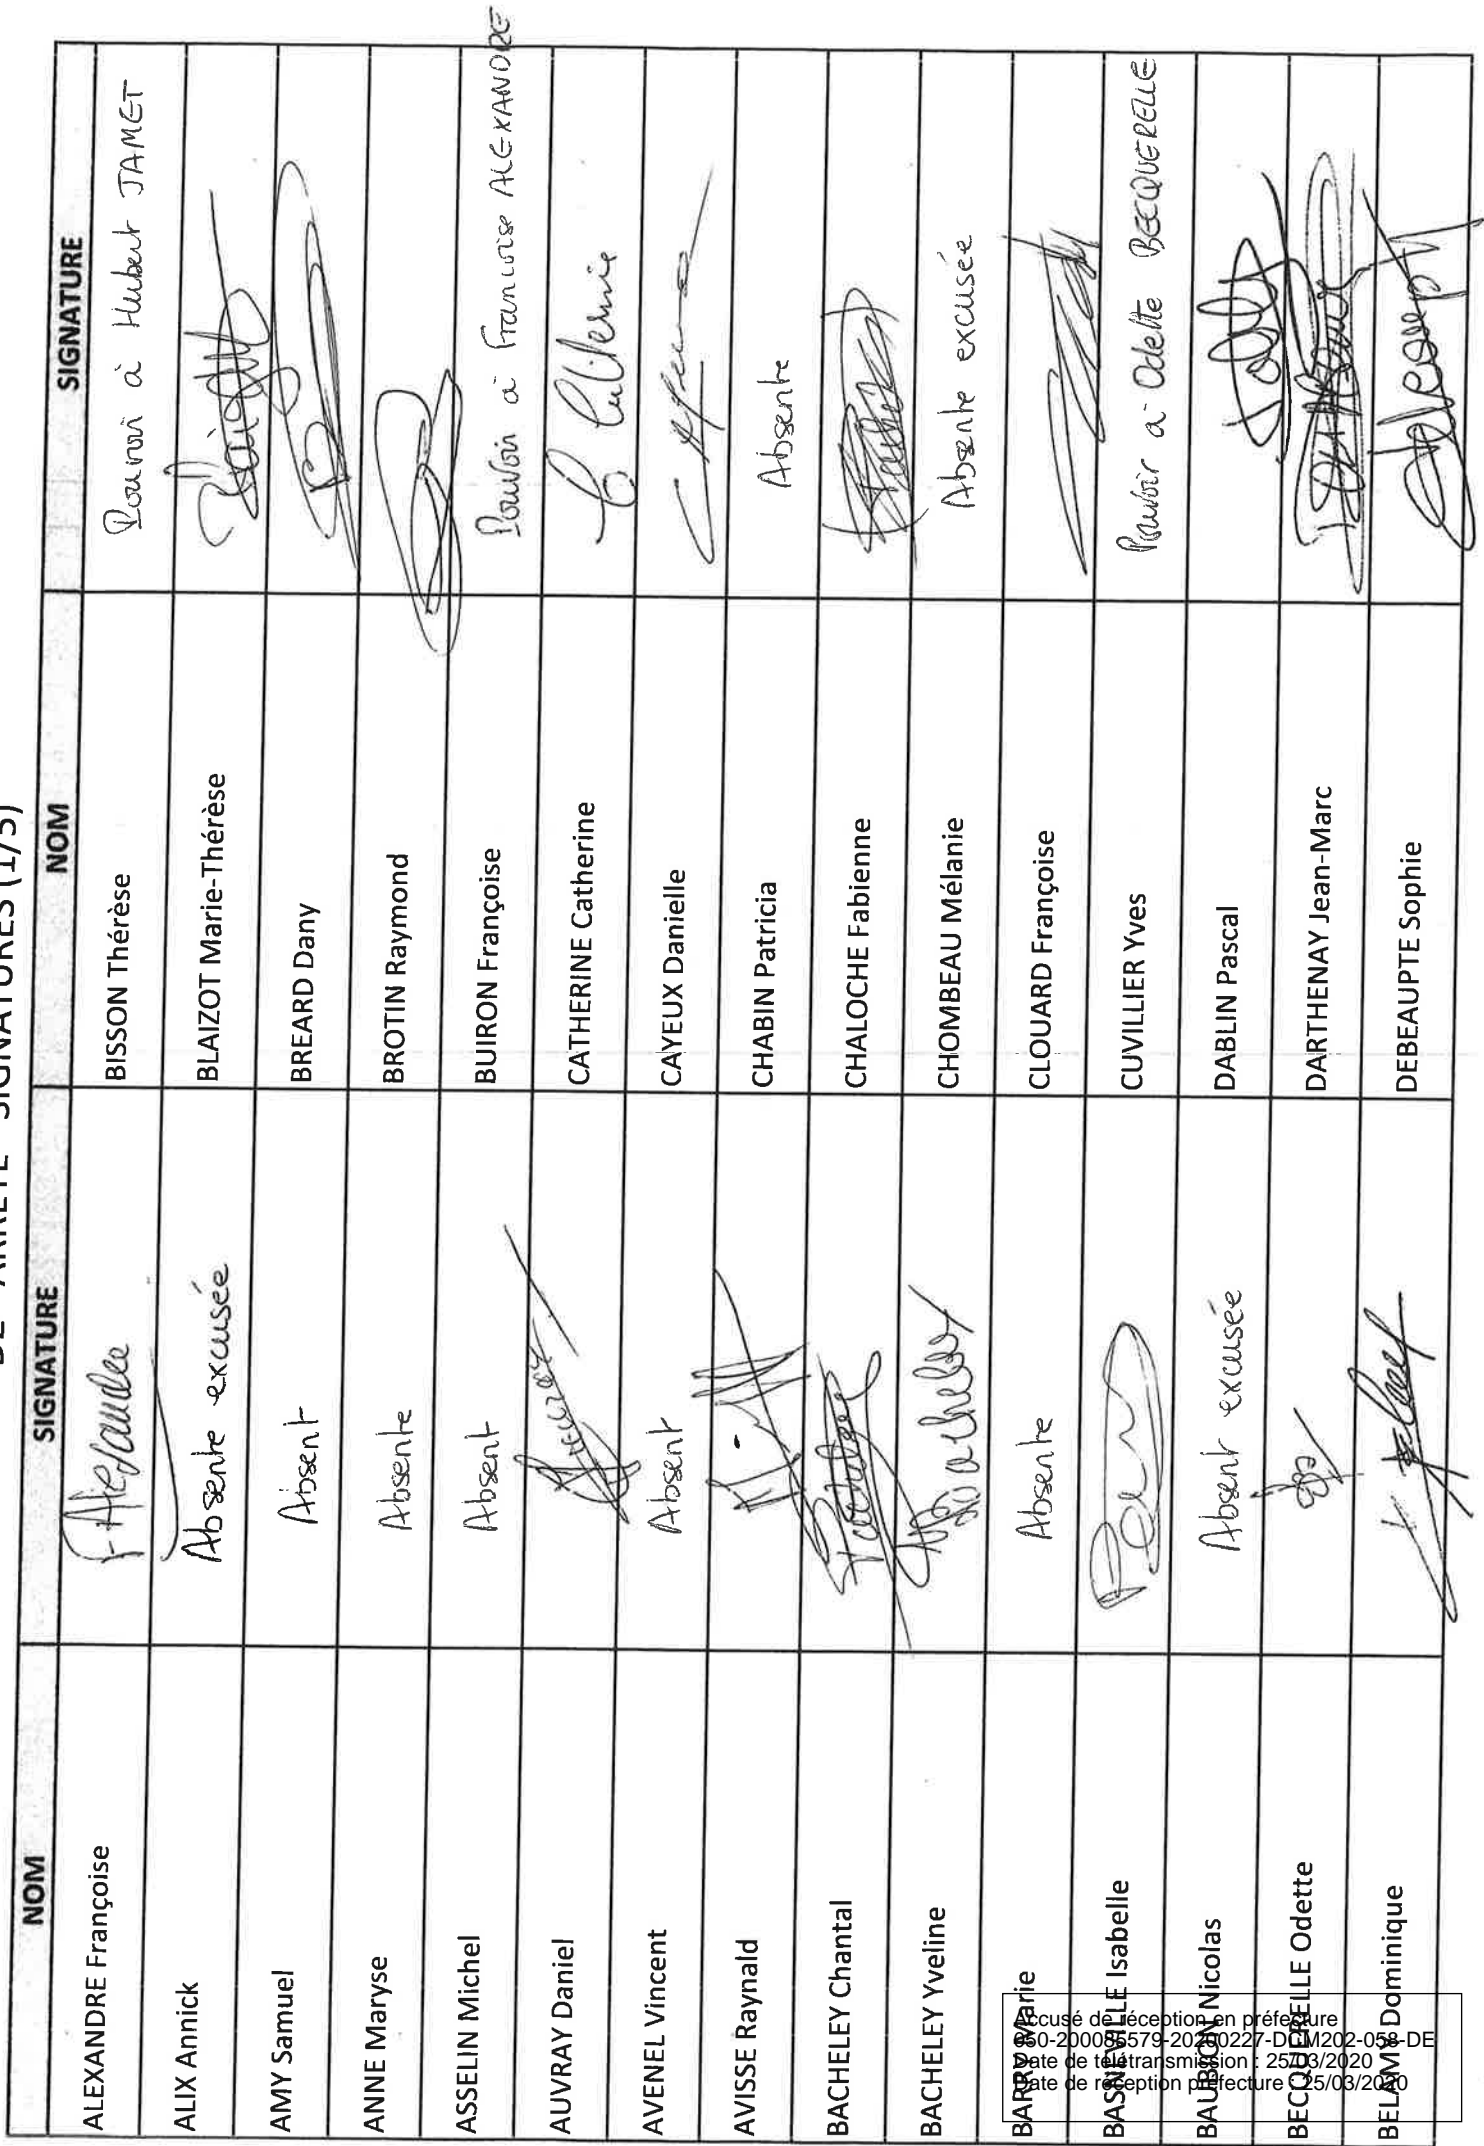 NOM SIGNATURE NOM SIGNATURE
ALEXANDRE Françoise BISSON Thérèse Pouvoir à Hubert JAMET
ALIX Annick Absente excusée BLAIZOT Marie-Thérèse
AMY Samuel Absent BREARD Dany
ANNE Maryse Absente BROTIN Raymond
ASSELIN Michel Absent BUIRON Françoise Pouvoir à Françoise ALEXANDRE
AUVRAY Daniel CATHERINE Catherine
AVENEL Vincent Absent CAYEUX Danielle
AVISSE Raynald CHABIN Patricia Absente
BACHELEY Chantal CHALOCHE Fabienne
BACHELEY Yveline CHOMBEAU Mélanie Absente excusée
BARRY Marie Absente CLOUARD Françoise
BASNEVILLE Isabelle CUVILLIER Yves Pouvoir à Odette BECQUERELLE
BAUBION Nicolas Absent excusée DABLIN Pascal
BECQUERELLE Odette DARTHENAY Jean-Marc
BELAMY Dominique DEBEAUPTE Sophie
Accusé de réception en préfecture
050-200085579-20200227-DCM202-058-DE
Date de télétransmission : 25/03/2020
Date de réception préfecture : 25/03/2020